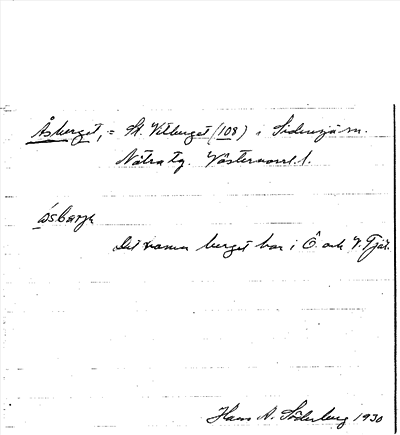 Åsberget, = St. Vitberget (108) i Sidensjö sn.
Nätra tg. Västernorrl. l.
åsbarjə
det namn berget har i Ö. och V. Fjär.
Hans N. Söderberg 1930